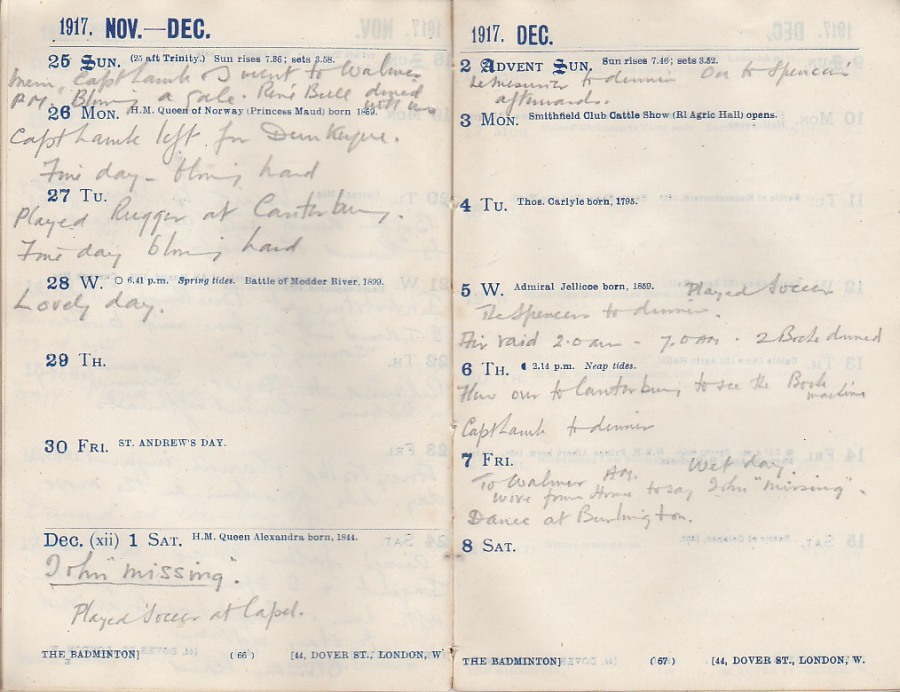 1917. NOV.—DEC.
25 SUN. (25 aft Trinity.) Sun rises 7.36; sets 3.58.
Capt Lamb & I went to Walmer
P.M. Blowing a gale. Bell dined
with us
26 MON. H.M. Queen of Norway (Princess Maud) born 1869.
Capt Lamb left for Dunkerque.
Fine day - blowing hard
27 TU.
Played Rugger at Canterbury.
Fine day blowing hard
28 W. 6.41 p.m. Spring tides. Battle of Modder River, 1899.
Lovely day.
29 TH.
30 FRI. ST. ANDREW'S DAY.
Dec. (xii) 1 SAT. H.M. Queen Alexandra born, 1844.
John "missing".
Played Soccer at Capel.
THE BADMINTON] (66) [44, DOVER ST., LONDON, W.
1917. DEC.
2 ADVENT SUN. Sun rises 7.46; sets 3.52.
to dinner On to Spencers
afterwards.
3 MON. Smithfield Club Cattle Show (Rl Agric Hall) opens.
4 TU. Thos. Carlyle born, 1795.
5 W. Admiral Jellicoe born, 1859. Played Soccer
The Spencers to dinner.
Air raid 2.0 am - 7.0 am - 2 Boche downed
6 TH. 2.14 p.m. Neap tides.
Flew over to Canterbury to see the Boche
machine
Capt Lamb to dinner
7 FRI. Wet day.
To Walmer AM.
wire from Home to say John "missing".
Dance at Burlington.
8 SAT.
THE BADMINTON] (67) [44, DOVER ST., LONDON, W.